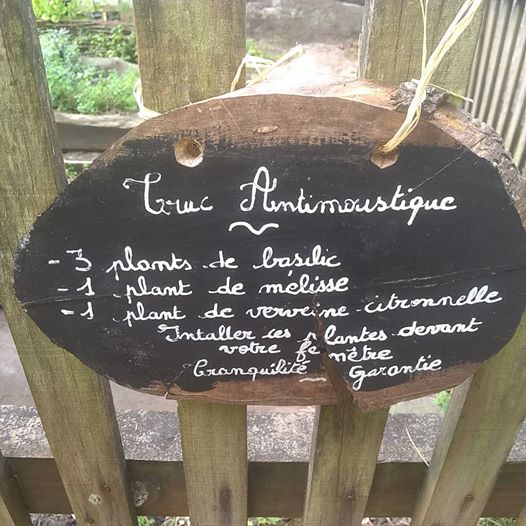 Truc Antimoustique
~
- 3 plants de basilic
- 1 plant de mélisse
- 1 plant de verveine citronnelle
Intaller ces plantes devant
votre fenêtre
Tranquilité ~ Garantie